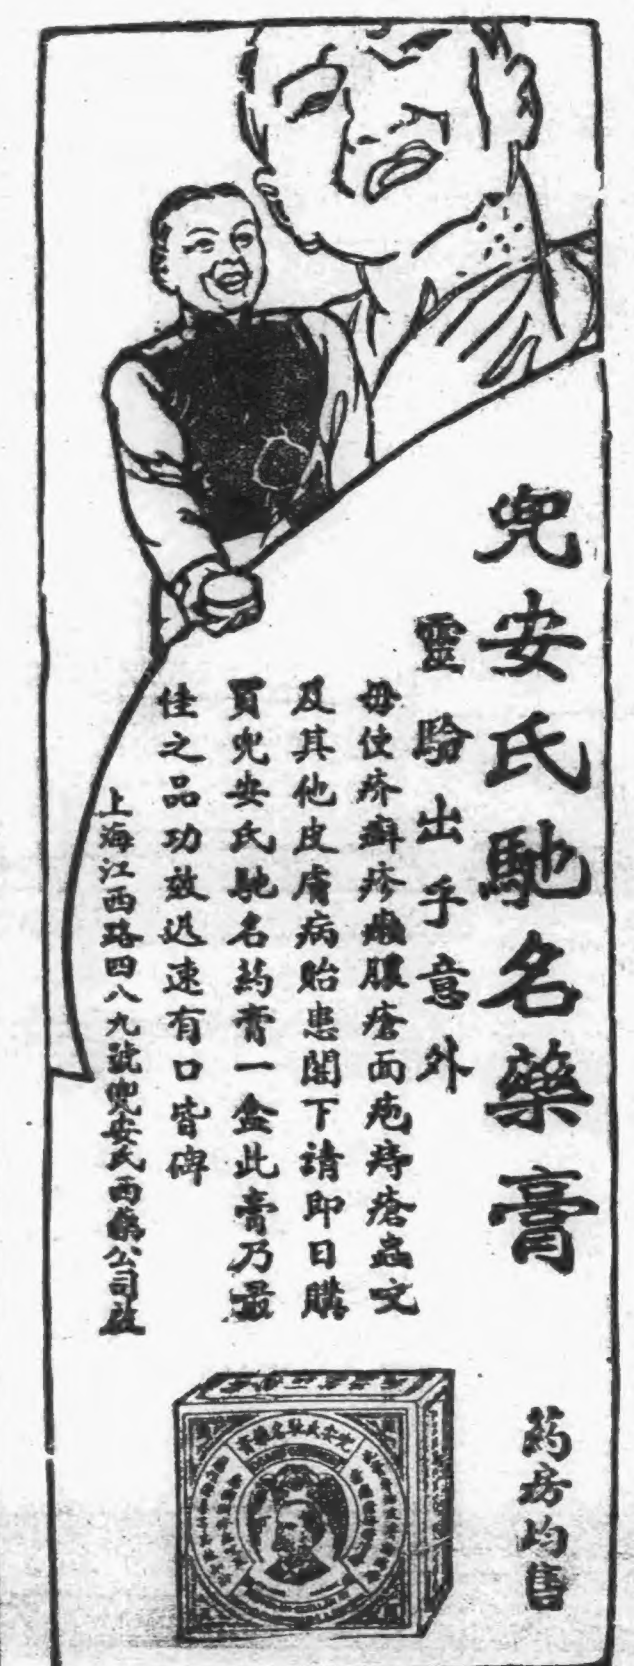 兜安氏馳名藥膏
靈驗出乎意外
毋使疥癬疹癩膿瘡面疱痔瘡蟲咬
及其他皮膚病貽患閣下請即日購
買兜安氏馳名药膏一盒此膏乃最
佳之品功效迅速有口皆碑
上海江西路四八九號兜安氏西藥公司啟
药房均售